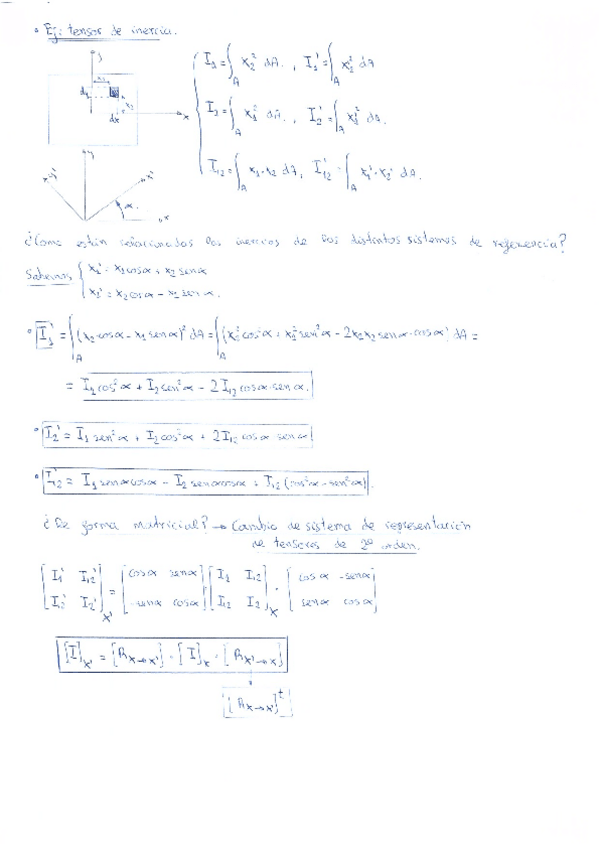 • Ej: tensor de inercia.
I₁ = ∫_A x₂² dA. , I₁' = ∫_A x₂'² dA
I₂ = ∫_A x₁² dA. , I₂' = ∫_A x₁'² dA.
I₁₂ = ∫_A x₁·x₂ dA, I₁₂' = ∫_A x₁'·x₂' dA.
dy
dx
x
y
α
x
¿Como están relacionados los inercias de los distintos sistemas de referencia?
Sabemos { x₁' = x₁cosα + x₂ senα
x₂' = x₂cosα - x₁ senα.
• I₁' = ∫_A (x₂·cosα - x₁ senα)² dA = ∫_A (x₂²cos²α + x₁² sen²α - 2x₁x₂ senα·cosα) dA =
= I₁cos²α + I₂sen²α - 2I₁₂cosα·senα.
• I₂' = I₁ sen²α + I₂cos²α + 2I₁₂ cosα senα
• I₁₂' = I₁ senαcosα - I₂ senαcosα + I₁₂ (cos²α - sen²α)
¿De forma matricial? → Cambio de sistema de representación
de tensores de 2º orden.
[I₁' I₁₂'; I₁₂' I₂']_x' = [cosα senα; -senα cosα] [I₁ I₁₂; I₁₂ I₂]_x · [cosα -senα; senα cosα]
[I]_x' = [R_x→x'] · [I]_x · [R_x'→x]
[R_x→x']^t